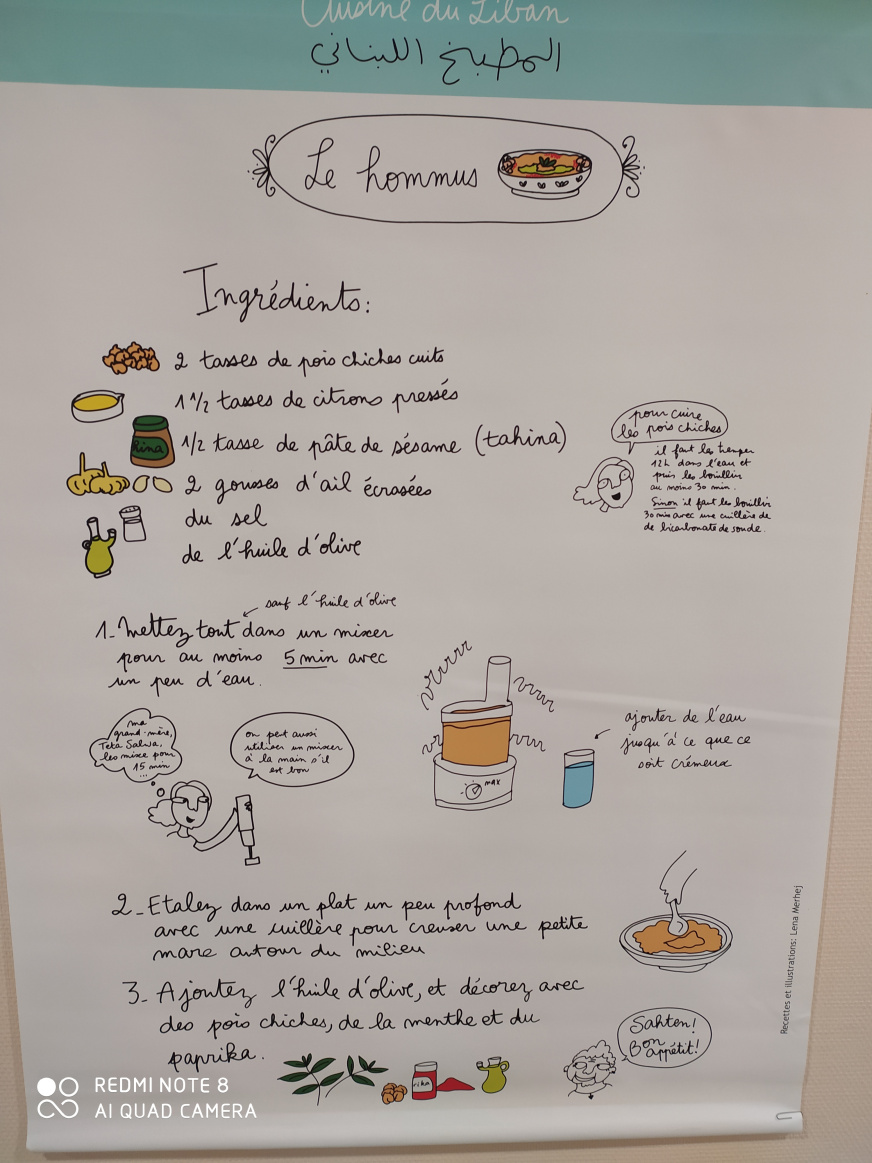 Cuisine du Liban
المطبخ اللبناني
Le hommus
Ingrédients:
2 tasses de pois chiches cuits
1 1/2 tasses de citrons pressés
Rina
1/2 tasse de pâte de sésame (tahina)
2 gousses d'ail écrasées
du sel
de l'huile d'olive
pour cuire
les pois chiches
il faut les tremper
12h dans l'eau et
puis les bouillir
au moins 30 min.
Sinon il faut les bouillir
30 min avec une cuillère de
de bicarbonate de soude.
sauf l'huile d'olive
1- Mettez tout dans un mixer
pour au moins 5 min avec
un peu d'eau.
ma
grand-mère,
Teta Salwa,
les mixe pour
15 min
...
on peut aussi
utiliser un mixer
à la main s'il
est bon
vrrrrr
MAX
ajouter de l'eau
jusqu'à ce que ce
soit crémeux
2- Etalez dans un plat un peu profond
avec une cuillère pour creuser une petite
mare autour du milieu
3- Ajoutez l'huile d'olive, et décorez avec
des pois chiches, de la menthe et du
paprika.
rika
Sahten!
Bon
appétit!
Recettes et illustrations: Lena Merhej
REDMI NOTE 8
AI QUAD CAMERA